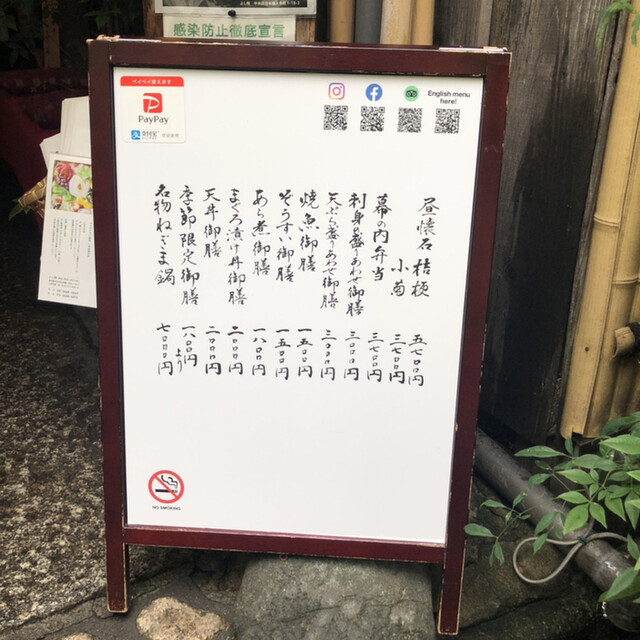 感染防止徹底宣言
ペイペイ使えます
PayPay
English menu
here!
昼懐石 桔梗 五七〇〇円
小菊 三七〇〇円
幕の内弁当 三七〇〇円
刺身盛りあわせ御膳 三〇〇〇円
天ぷら盛りあわせ御膳 三〇〇〇円
焼魚御膳 一五〇〇円
ぞうすい御膳 一五〇〇円
あら煮御膳 一八〇〇円
まぐろ漬け丼御膳 二〇〇〇円
天丼御膳 二〇〇〇円
季節限定御膳 一八〇〇円より
名物ねぎま鍋 七〇〇〇円
NO SMOKING